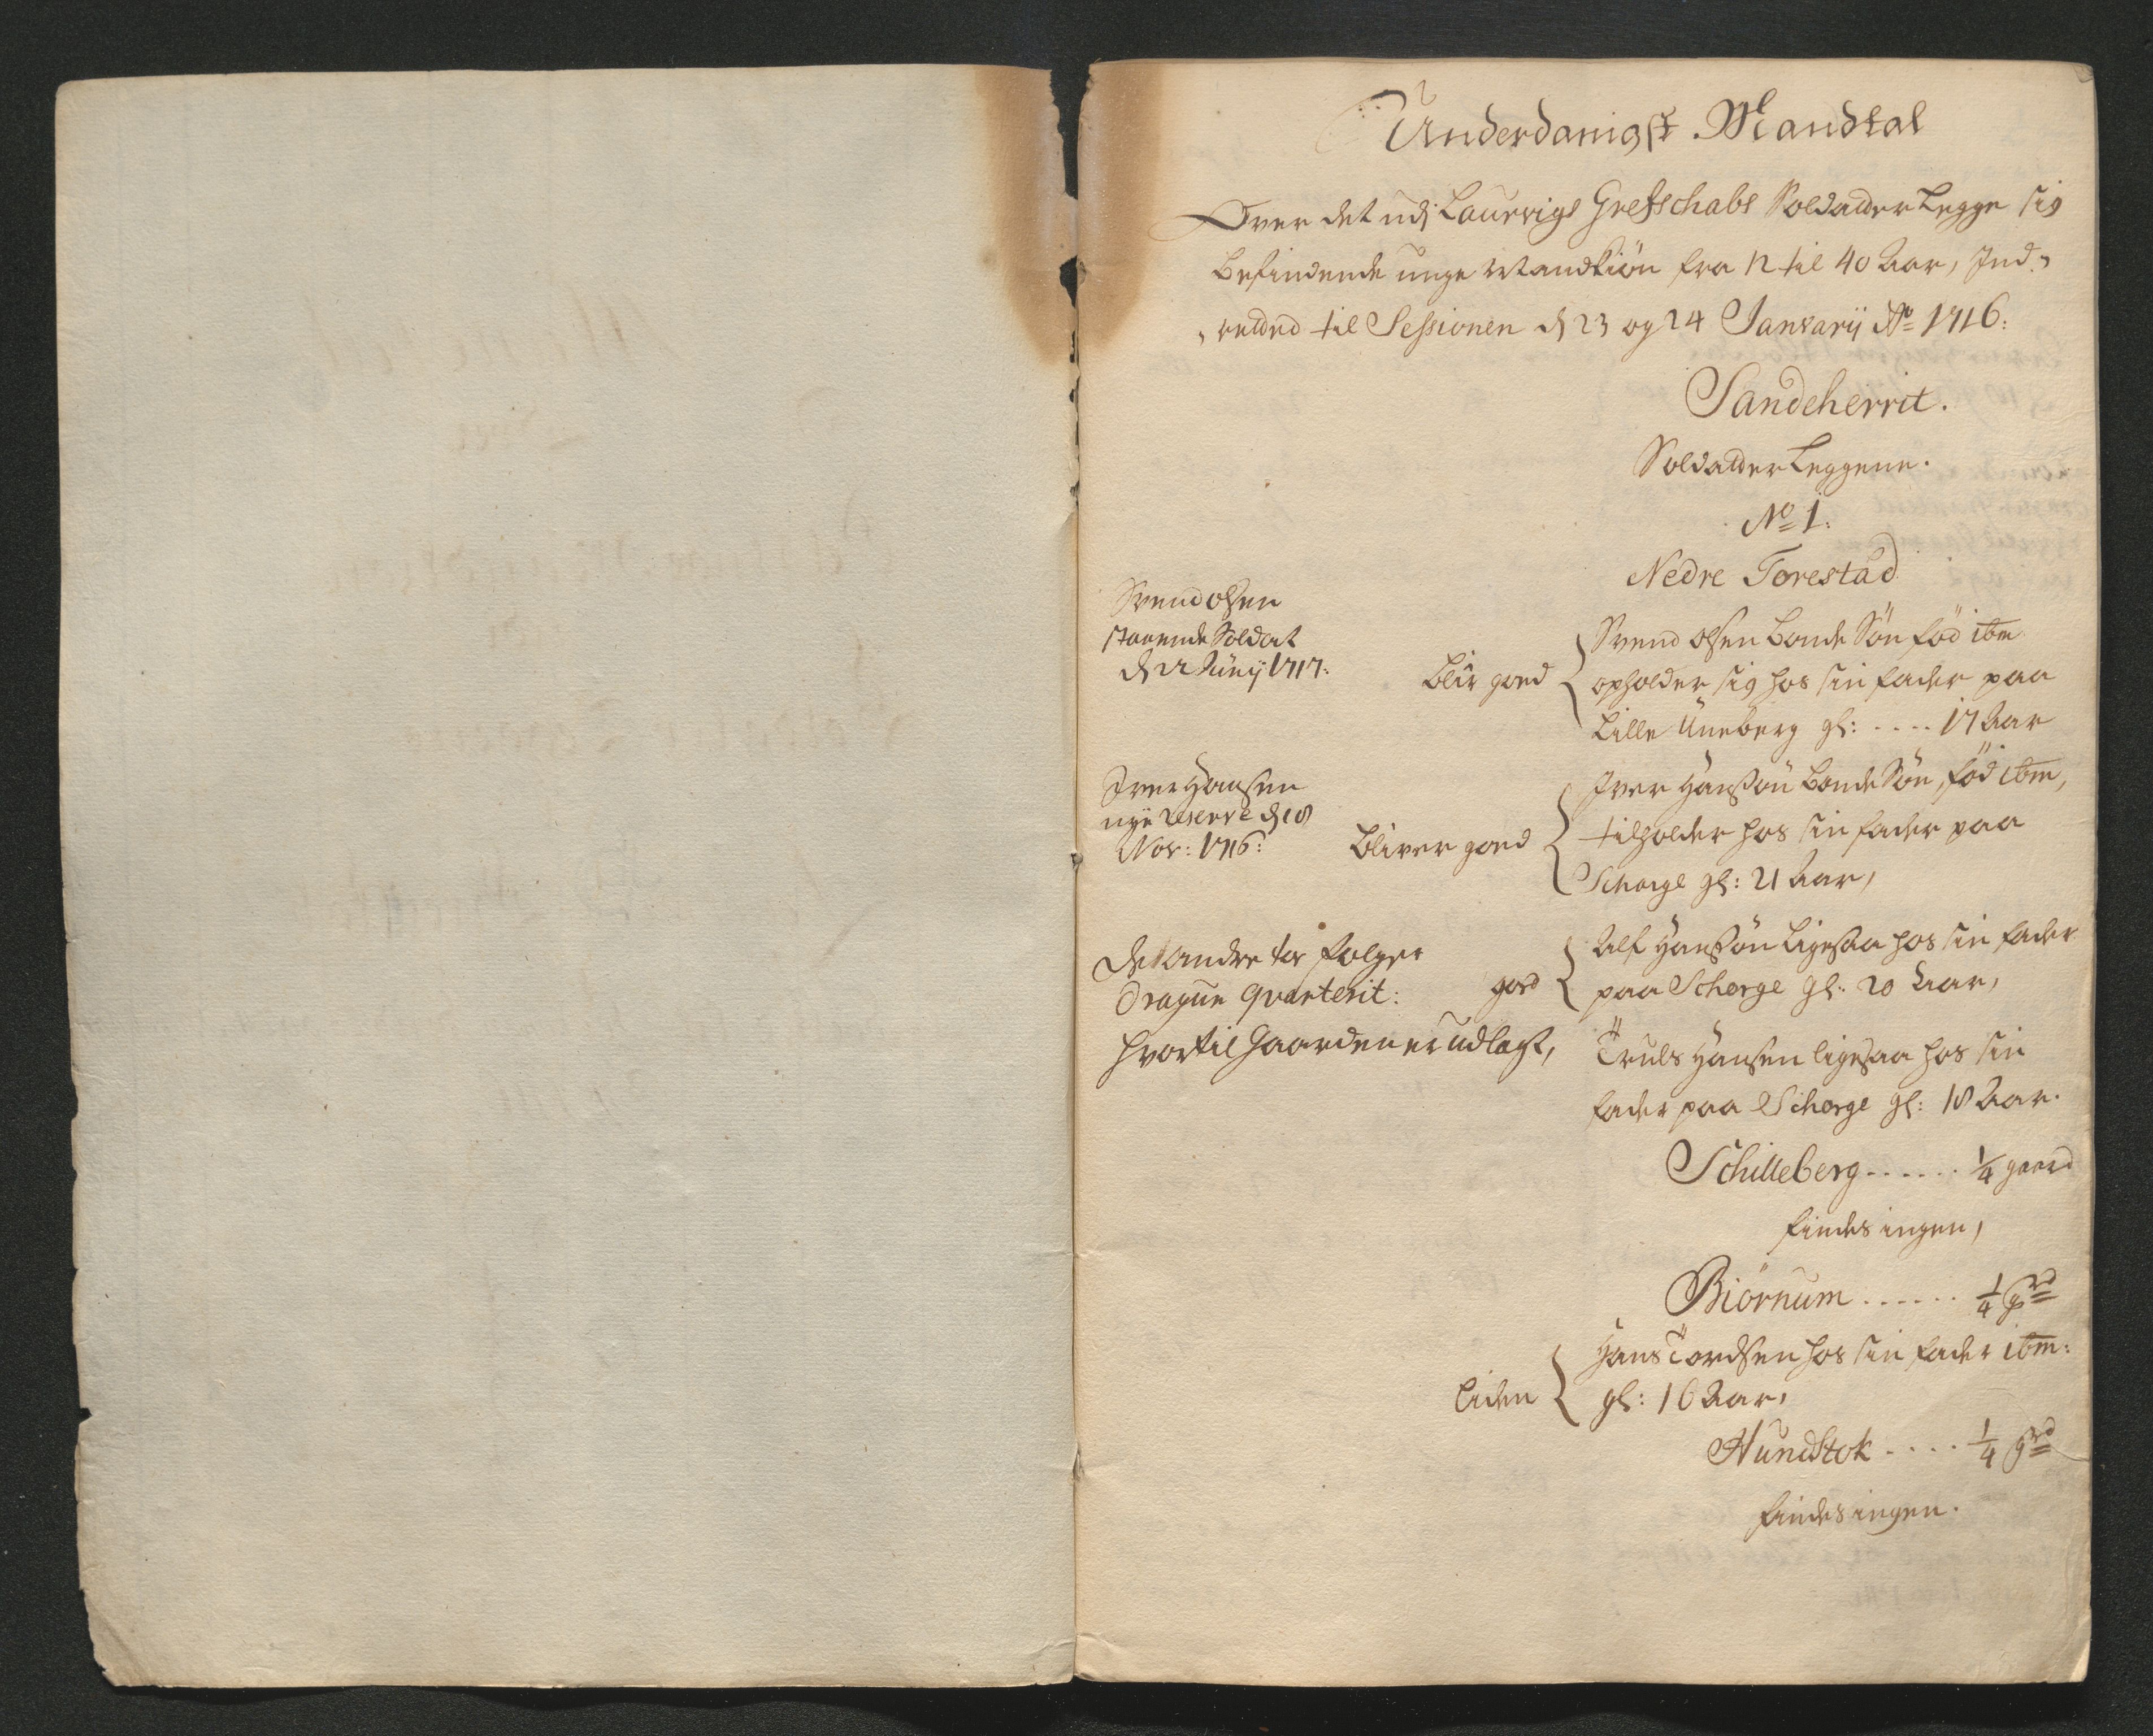 Underdanigst Mandtal
Over det udj Laurvigs Grefschabs Soldatter Legge sig
befindende unge Mandkiøn fra 12 til 40 Aar, Ind-
retted til Sessionen d 23 og 24 Janvarij Ao 1716:
Sandeherrit.
Soldatter Leggene.
No 1.
Nedre Torestad
Svend Olsen
staaende Soldat
d 22 Junij 1717:
blir goed
Svend Olsen bonde Søn fød ibm
opholder sig hos sin fader paa
Lille Uneberg gl: .... 17 Aar
Iver Hansen
nye reserve d 18
Nov: 1716:
bliver goed
Iver Hanssøn bonde Søn, fød ibm,
tilholder hos sin fader paa
Schorge gl: 21 Aar,
De andre to følger
Dragun qvarterit:
hvortil Gaarden er udlagt,
goed
Alf Hanssøn ligesaa hos sin fader
paa Schorge gl: 20 Aar,
Truls Hansen ligesaa hos sin
fader paa Schorge gl: 18 Aar.
Schilleberg ...... 1/4 gaard
findes ingen,
Biørnum ...... 1/4 grd
liden
Hans Tordsen hos sin fader ibm:
gl: 16 Aar,
Hundstok .... 1/4 grd
findes ingen.